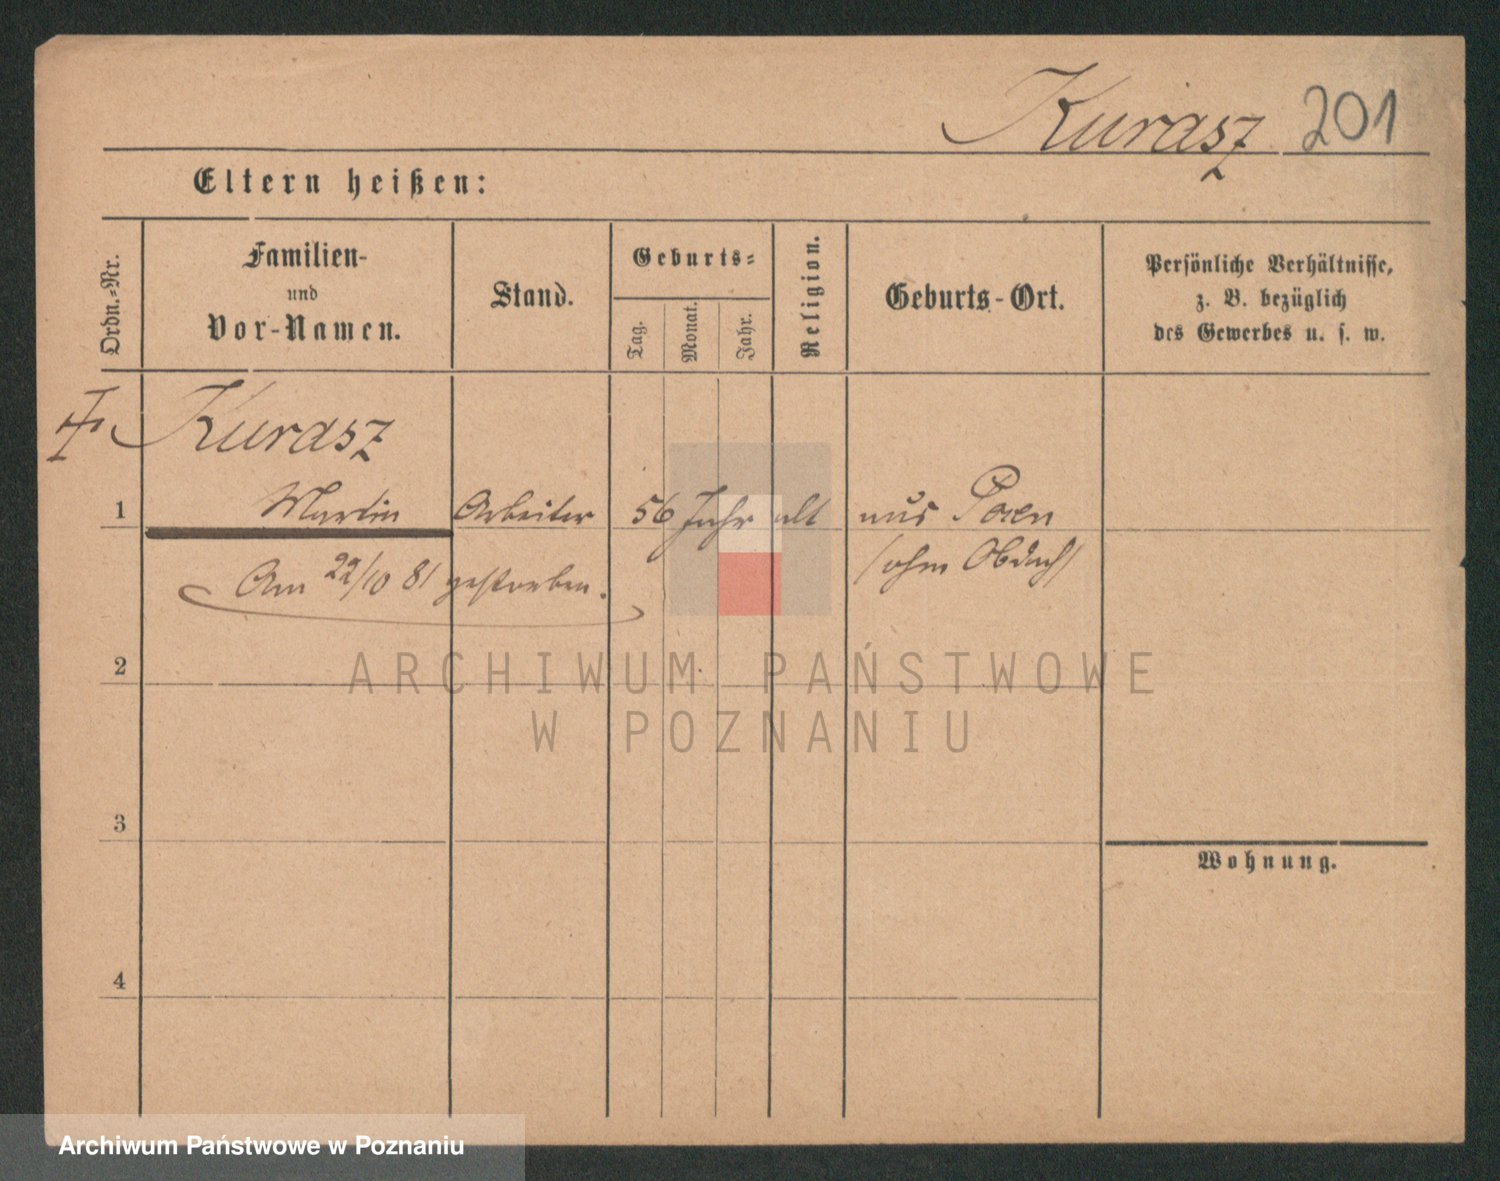 Kurasz 201
Eltern heißen:
Ordn.-Nr.
Familien-
und
Vor-Namen.
Stand.
Geburts-
Tag.
Monat.
Jahr.
Religion.
Geburts-Ort.
Persönliche Verhältnisse,
z. B. bezüglich
des Gewerbes u. s. w.
Kurasz
1 Martin Arbeiter 56 Jahr alt aus Posen
(ohn Obdach)
Am 22/10 81 gestorben.
2
ARCHIWUM PAŃSTWOWE
W POZNANIU
3
Wohnung.
4
Archiwum Państwowe w Poznaniu